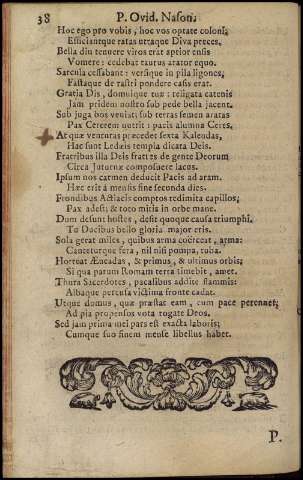 38 P. Ovid. Nasoni.
Hoc ego pro vobis, hoc vos optate coloni,
Efficiantque ratas utraque Diva preces.
Bella diu tenuere viros erat aptior ensis
Vomere: cedebat taurus arator equo.
Sarcula cessabant: versique in pila ligones,
Factaque de rastri pondere casis erat.
Gratia Dis, domuique tuæ: religata catenis
Jam pridem nostro sub pede bella jacent.
Sub juga bos veniat: sub terras semen aratas
Pax Cererem nutrit: pacis alumna Ceres.
At quæ venturas præcedet sexta Kalendas,
Hac sunt Ledæis templa dicata Deis.
Fratribus illa Deis fratres de gente Deorum
Circa Juturnæ composuere lacus.
Ipsum nos carmen deducit Pacis ad aram.
Hæc erit à mensis fine secunda dies.
Frondibus Actiacis comptos redimita capillos;
Pax adest; & toto mitis in orbe mane.
Dum desunt hostes, desit quoque causa triumphi.
Tu Ducibus bello gloria major eris.
Sola gerat miles, quibus arma coërceat, arma:
Canteturque fera, nil nisi pompa, tuba.
Horreat Æneadas, & primus, & ultimus orbis;
Si qua parum Romam terra timebit, amet.
Thura Sacerdotes, pacalibus addite flammis:
Albaque percussa victima fronte cadat.
Utque domus, quæ præstat eam, cum pace perennet;
Ad pia propensos vota rogate Deos.
Sed jam prima mei pars est exacta laboris;
Cumque suo finem mense libellus habet.
P.